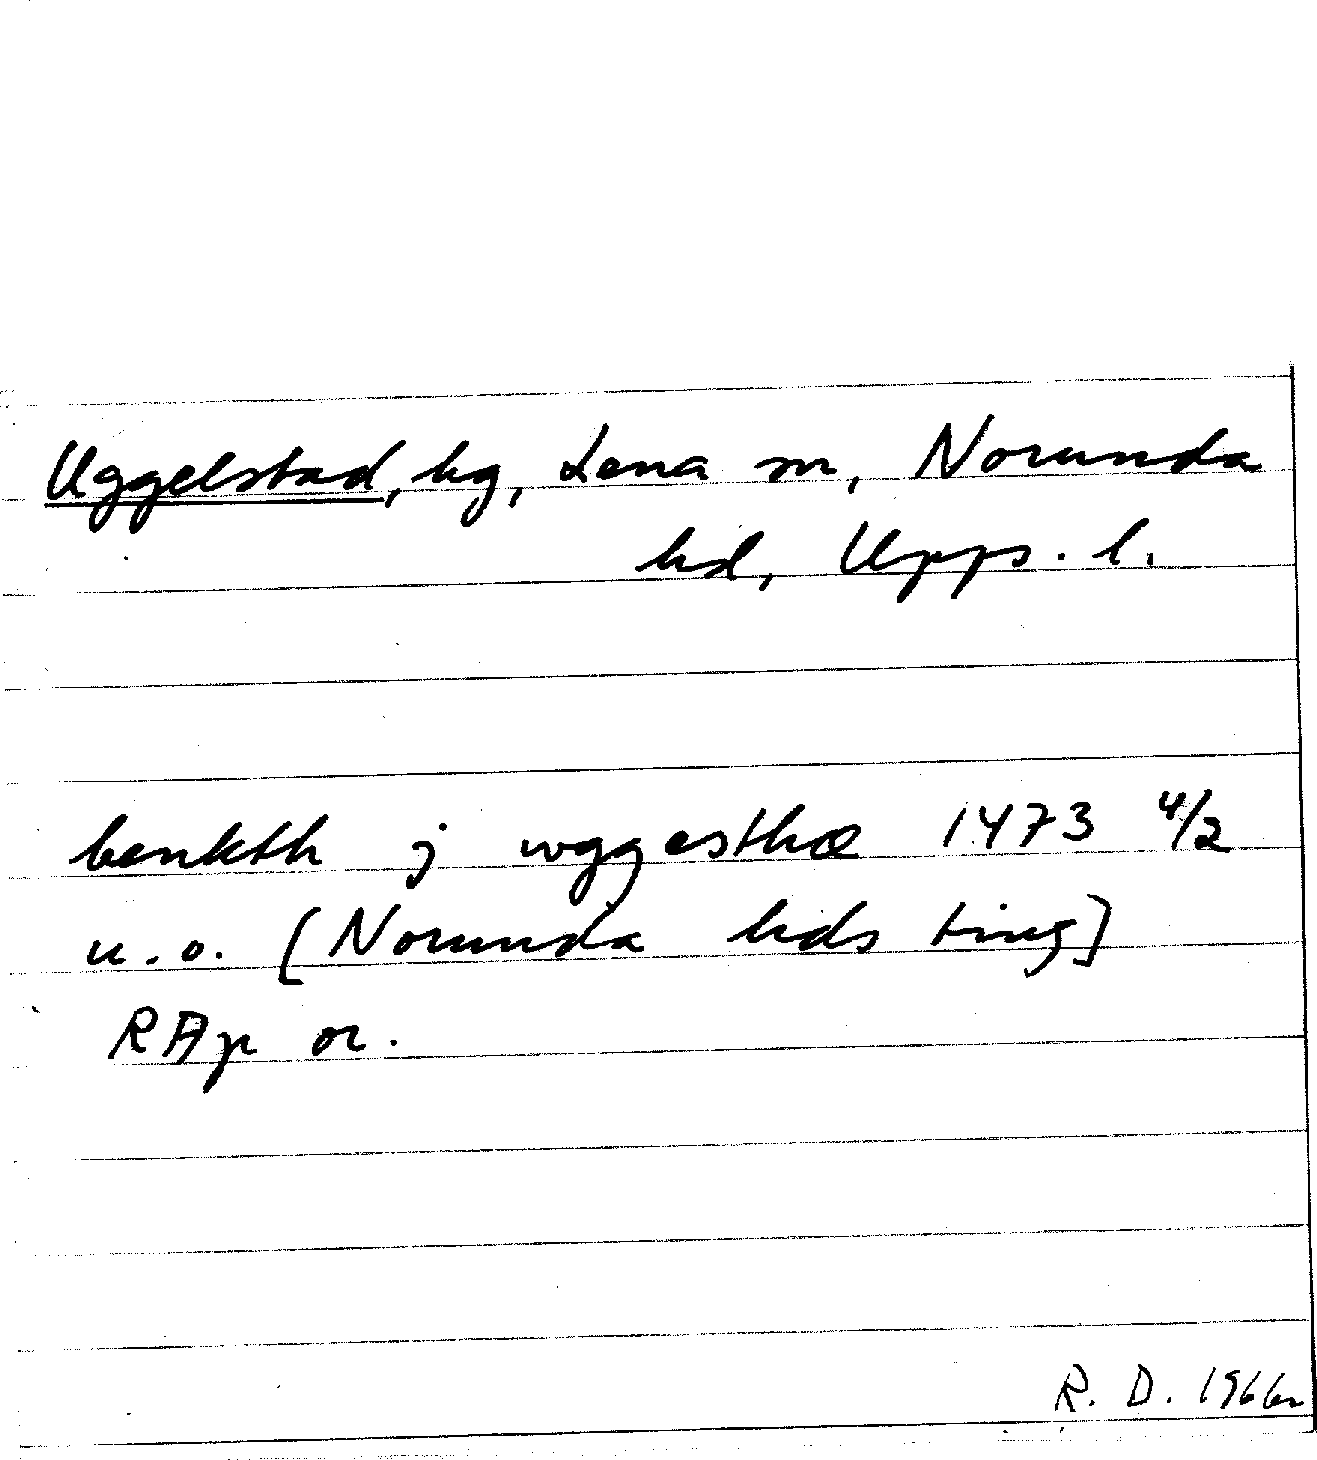 Uggelstad, hg, Lena sn, Norunda
hd, Upps. l.
benkth j wggesthæ 1473 4/2
u.o. [Norunda hds ting]
RAp or.
R. D. 1966